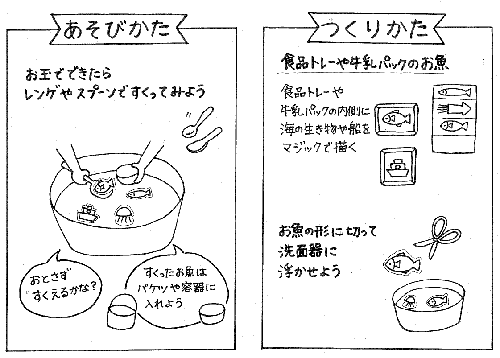 あそびかた
お玉でできたら
レンゲやスプーンですくってみよう
おとさず
すくえるかな？
すくったお魚は
バケツや容器に
入れよう
つくりかた
食品トレーや牛乳パックのお魚
食品トレーや
牛乳パックの内側に
海の生き物や船を
マジックで描く
お魚の形に切って
洗面器に
浮かせよう